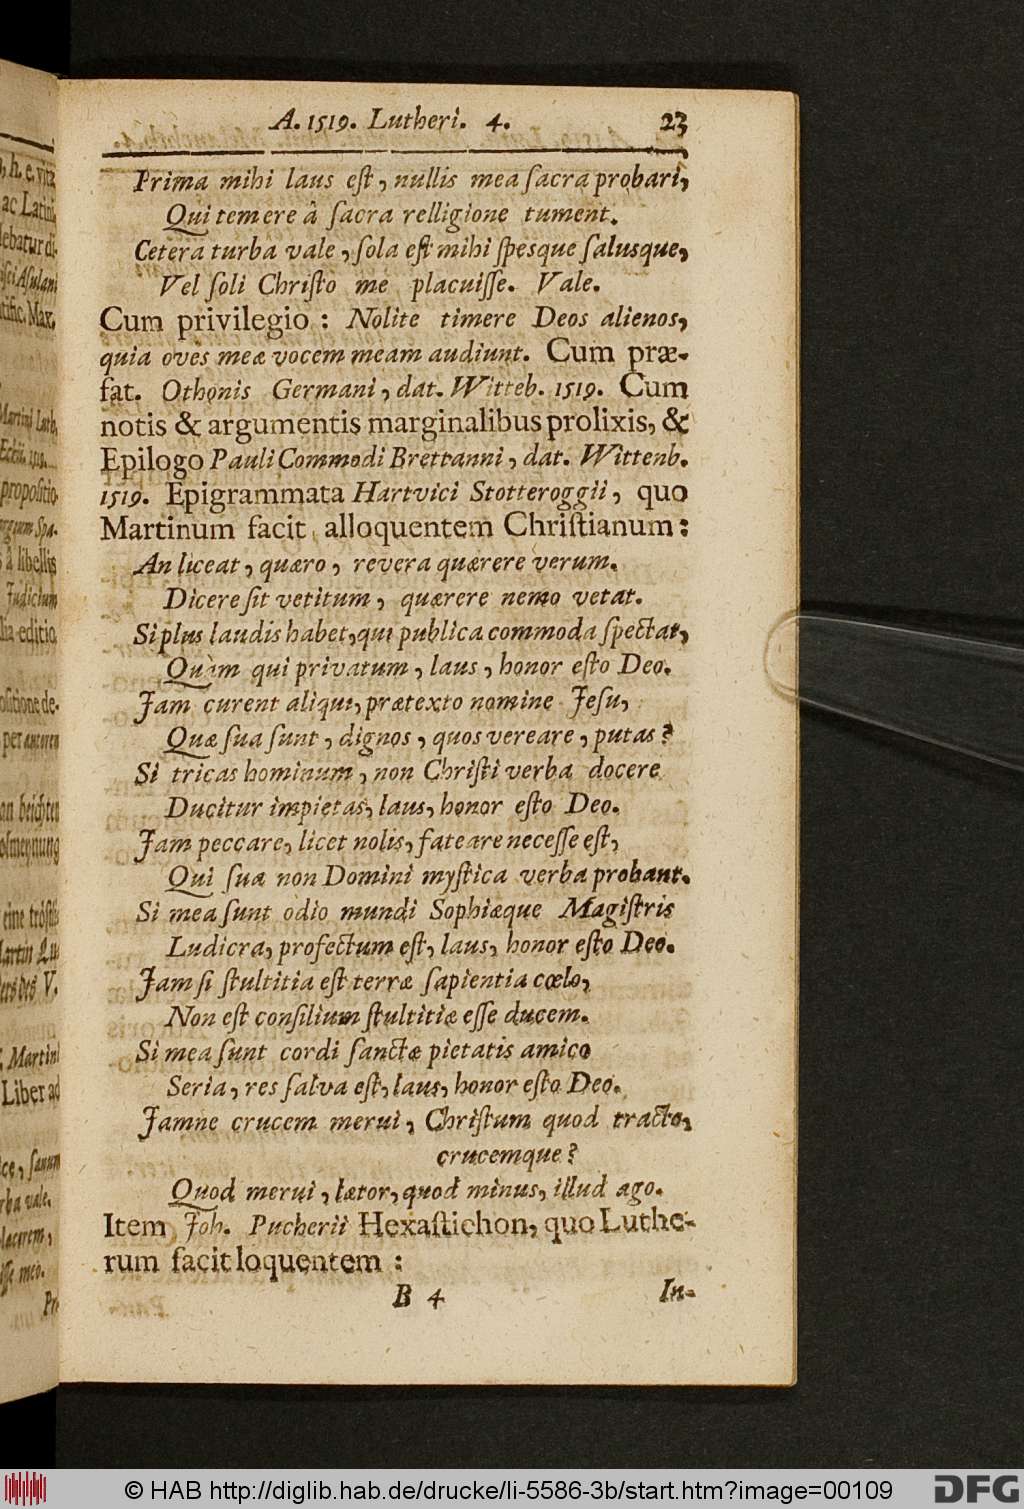 A. 1519. Lutheri. 4. 23
Prima mihi laus eſt, nullis mea ſacra probari,
Qui temere â ſacra relligione tument.
Cetera turba vale, ſola eſt mihi ſpesque ſalusque,
Vel ſoli Chriſto me placuiſſe. Vale.
Cum privilegio : Nolite timere Deos alienos,
quia oves meæ vocem meam audiunt. Cum præ-
fat. Othonis Germani, dat. Witteb. 1519. Cum
notis & argumentis marginalibus prolixis, &
Epilogo Pauli Commodi Brettanni, dat. Wittenb.
1519. Epigrammata Hartvici Stotteroggii, quo
Martinum facit alloquentem Chriſtianum:
An liceat, quæro, revera quærere verum.
Dicere ſit vetitum, quærere nemo vetat.
Si plus laudis habet, qui publica commoda ſpectat,
Quàm qui privatum, laus, honor eſto Deo.
Jam curent aliqui, prætexto nomine Jeſu,
Quæ ſua ſunt, dignos, quos vereare, putas?
Si tricas hominum, non Chriſti verba docere
Ducitur impietas, laus, honor eſto Deo.
Jam peccare, licet nolis, fateare neceſſe eſt,
Qui ſua non Domini myſtica verba probant.
Si mea ſunt odio mundi Sophiæque Magiſtris
Ludicra, profectum eſt, laus, honor eſto Deo.
Jam ſi ſtultitia eſt terræ ſapientia cœlo,
Non eſt conſilium ſtultitiæ eſſe ducem.
Si mea ſunt cordi ſanctæ pietatis amico
Seria, res ſalva eſt, laus, honor eſto Deo.
Jamne crucem merui, Chriſtum quod tracto,
crucemque?
Quod merui, lætor, quod minus, illud ago.
Item Joh. Pucherii Hexaſtichon, quo Luthe-
rum facit loquentem :
B 4 In-
© HAB http://diglib.hab.de/drucke/li-5586-3b/start.htm?image=00109
DFG